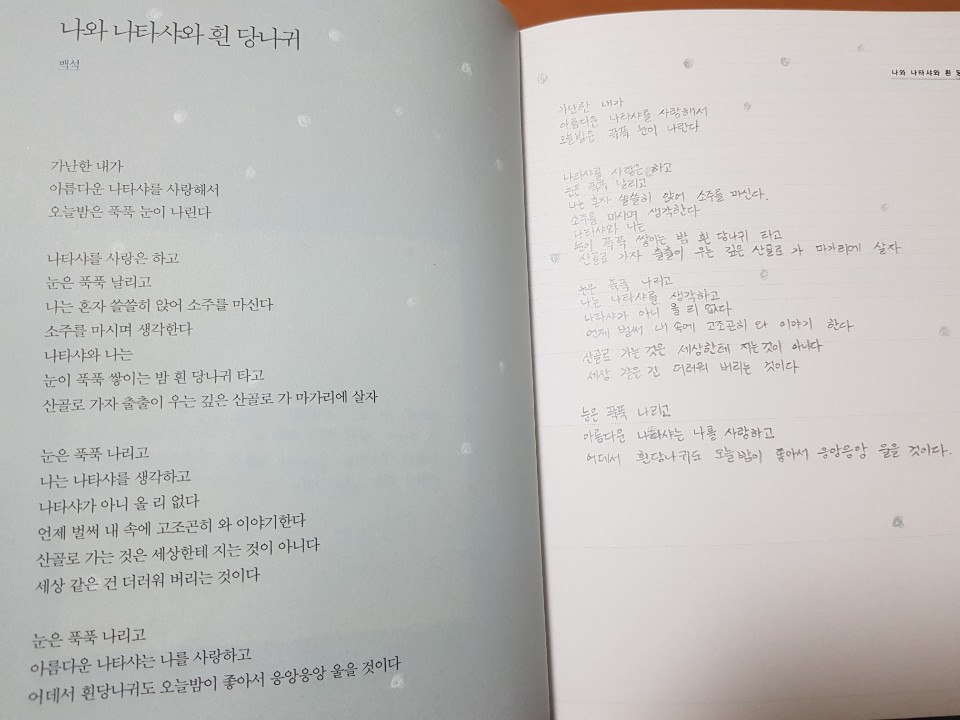 나와 나타샤와 흰 당나귀
백석
가난한 내가
아름다운 나타샤를 사랑해서
오늘밤은 푹푹 눈이 나린다
나타샤를 사랑은 하고
눈은 푹푹 날리고
나는 혼자 쓸쓸히 앉어 소주를 마신다
소주를 마시며 생각한다
나타샤와 나는
눈이 푹푹 쌓이는 밤 흰 당나귀 타고
산골로 가자 출출이 우는 깊은 산골로 가 마가리에 살자
눈은 푹푹 나리고
나는 나타샤를 생각하고
나타샤가 아니 올 리 없다
언제 벌써 내 속에 고조곤히 와 이야기한다
산골로 가는 것은 세상한테 지는 것이 아니다
세상 같은 건 더러워 버리는 것이다
눈은 푹푹 나리고
아름다운 나타샤는 나를 사랑하고
어데서 흰당나귀도 오늘밤이 좋아서 응앙응앙 울을 것이다
나와 나타샤와 흰
가난한 내가
아름다운 나타샤를 사랑해서
오늘밤은 푹푹 눈이 나린다
나타샤를 사랑은 하고
눈은 푹푹 날리고
나는 혼자 쓸쓸히 앉어 소주를 마신다.
소주를 마시며 생각한다
나타샤와 나는
눈이 푹푹 쌓이는 밤 흰 당나귀 타고
산골로 가자 출출이 우는 깊은 산골로 가 마가리에 살자
눈은 푹푹 나리고
나는 나타샤를 생각하고
나타샤가 아니 올 리 없다
언제 벌써 내 속에 고조곤히 와 이야기 한다
산골로 가는 것은 세상한테 지는 것이 아니다
세상 같은 건 더러워 버리는 것이다
눈은 푹푹 나리고
아름다운 나타샤는 나를 사랑하고
어데서 흰당나귀도 오늘밤이 좋아서 응앙응앙 울을 것이다.